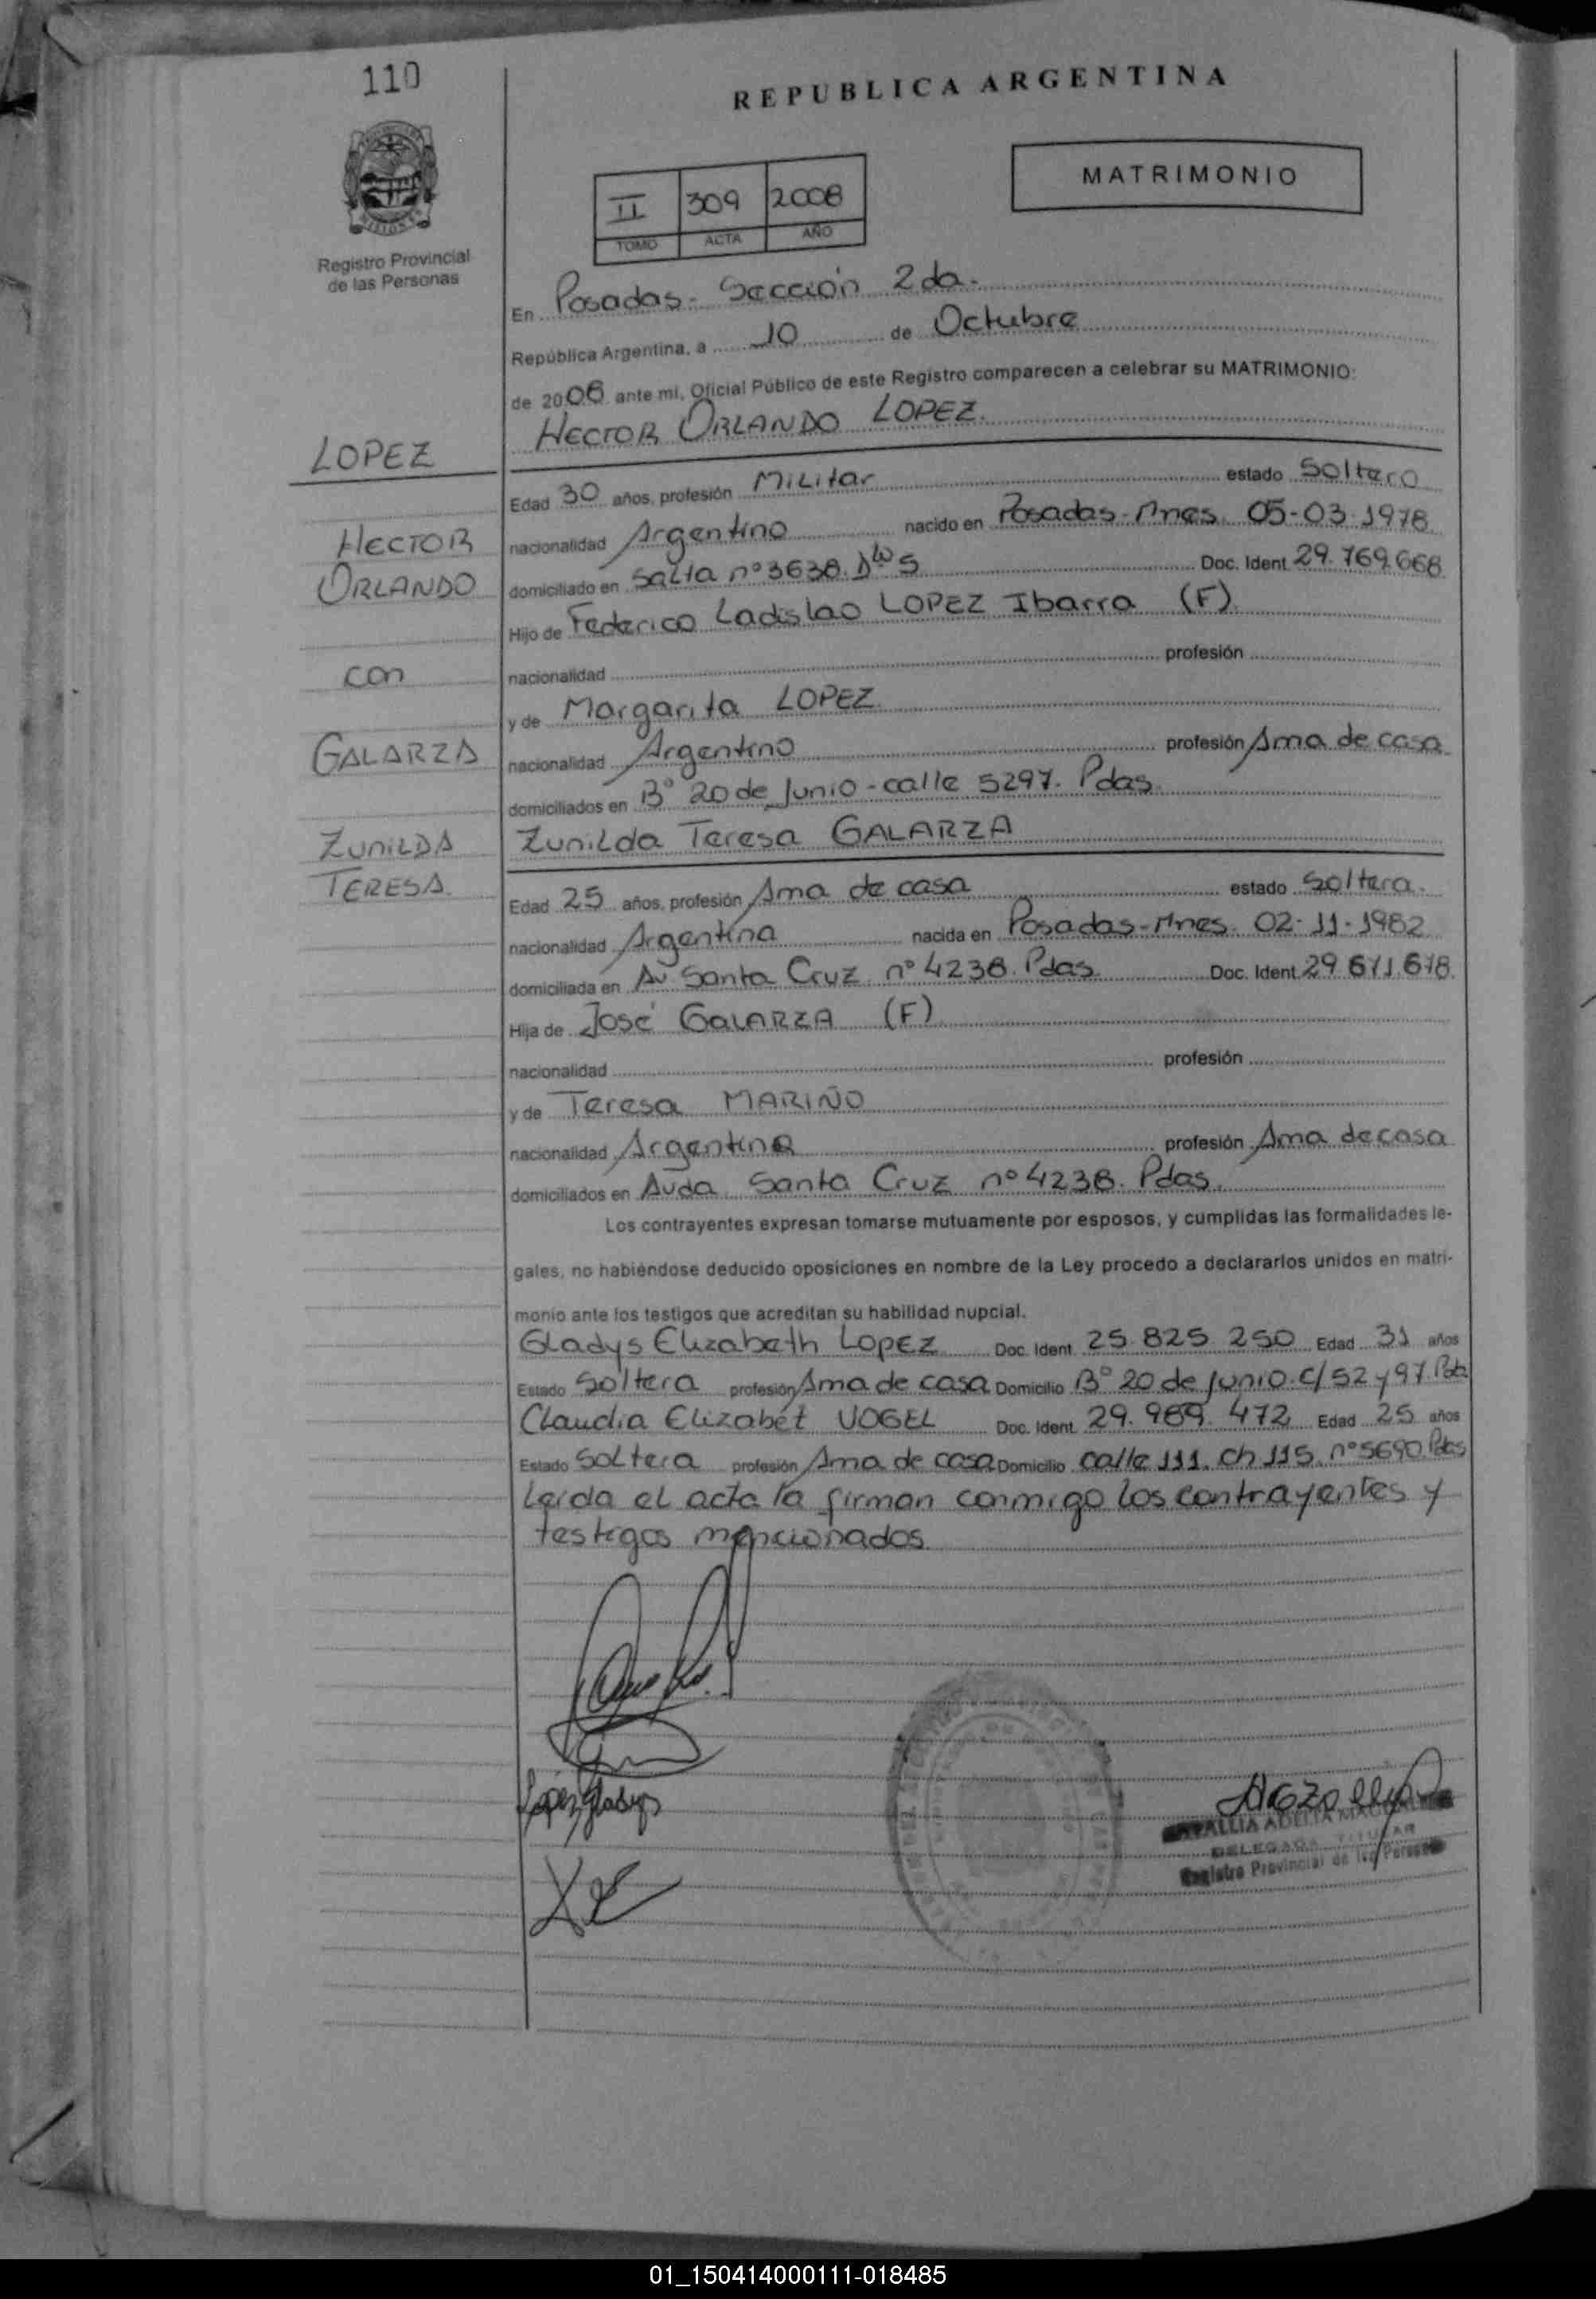 110
REPUBLICA ARGENTINA
MATRIMONIO
II 309 2008
TOMO ACTA AÑO
Registro Provincial
de las Personas
En Posadas - Sección 2da.
República Argentina, a 10 de Octubre
de 2008 ante mi, Oficial Público de este Registro comparecen a celebrar su MATRIMONIO:
HECTOR ORLANDO LOPEZ.
LOPEZ
Edad 30 años, profesión Militar estado Soltero
HECTOR
nacionalidad Argentino nacido en Posadas-Mnes. 05-03-1978
ORLANDO
domiciliado en Salta nº 3638. Doc. Ident 29.769.668
Hijo de Federico Ladislao LOPEZ Ibarra (F).
con
nacionalidad profesión
y de Margarita LOPEZ.
GALARZA
nacionalidad Argentino profesión Ama de casa
domiciliados en Bº 20 de Junio - calle 5297. Pdas.
ZUNILDA
Zunilda Teresa GALARZA
TERESA.
Edad 25 años, profesión Ama de casa estado Soltera.
nacionalidad Argentina nacida en Posadas-Mnes. 02-11-1982
domiciliada en Av Santa Cruz nº 4238. Pdas. Doc. Ident. 29.671.678.
Hija de José GALARZA (F)
nacionalidad profesión
y de Teresa MARIÑO
nacionalidad Argentina profesión Ama de casa
domiciliados en Avda Santa Cruz nº 4238. Pdas.
Los contrayentes expresan tomarse mutuamente por esposos, y cumplidas las formalidades le-
gales, no habiéndose deducido oposiciones en nombre de la Ley procedo a declararlos unidos en matri-
monio ante los testigos que acreditan su habilidad nupcial.
Gladys Elizabeth LOPEZ Doc. Ident. 25.825.250 Edad 31 años
Estado Soltera profesión Ama de casa Domicilio Bº 20 de Junio. C/ 52 y 97. Pdas
Claudia Elizabét VOGEL Doc. Ident. 29.989.472 Edad 25 años
Estado Soltera profesión Ama de casa Domicilio calle 111. Ch 115. nº 5690. Pdas
Leida el acta la firman conmigo los contrayentes y
testigos mencionados.
López Gladys
ADELIA
DELEGADA TITULAR
Registro Provincial de las Personas
01_150414000111-018485